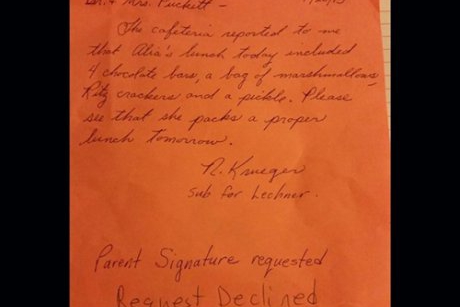 & Mrs. Puckett -
The cafeteria reported to me
that Alia's lunch today included
4 chocolate bars, a bag of marshmallows,
Ritz crackers and a pickle. Please
see that she packs a proper
lunch tomorrow.
R. Krueger
Sub for Lechner.
Parent Signature requested
Request Declined